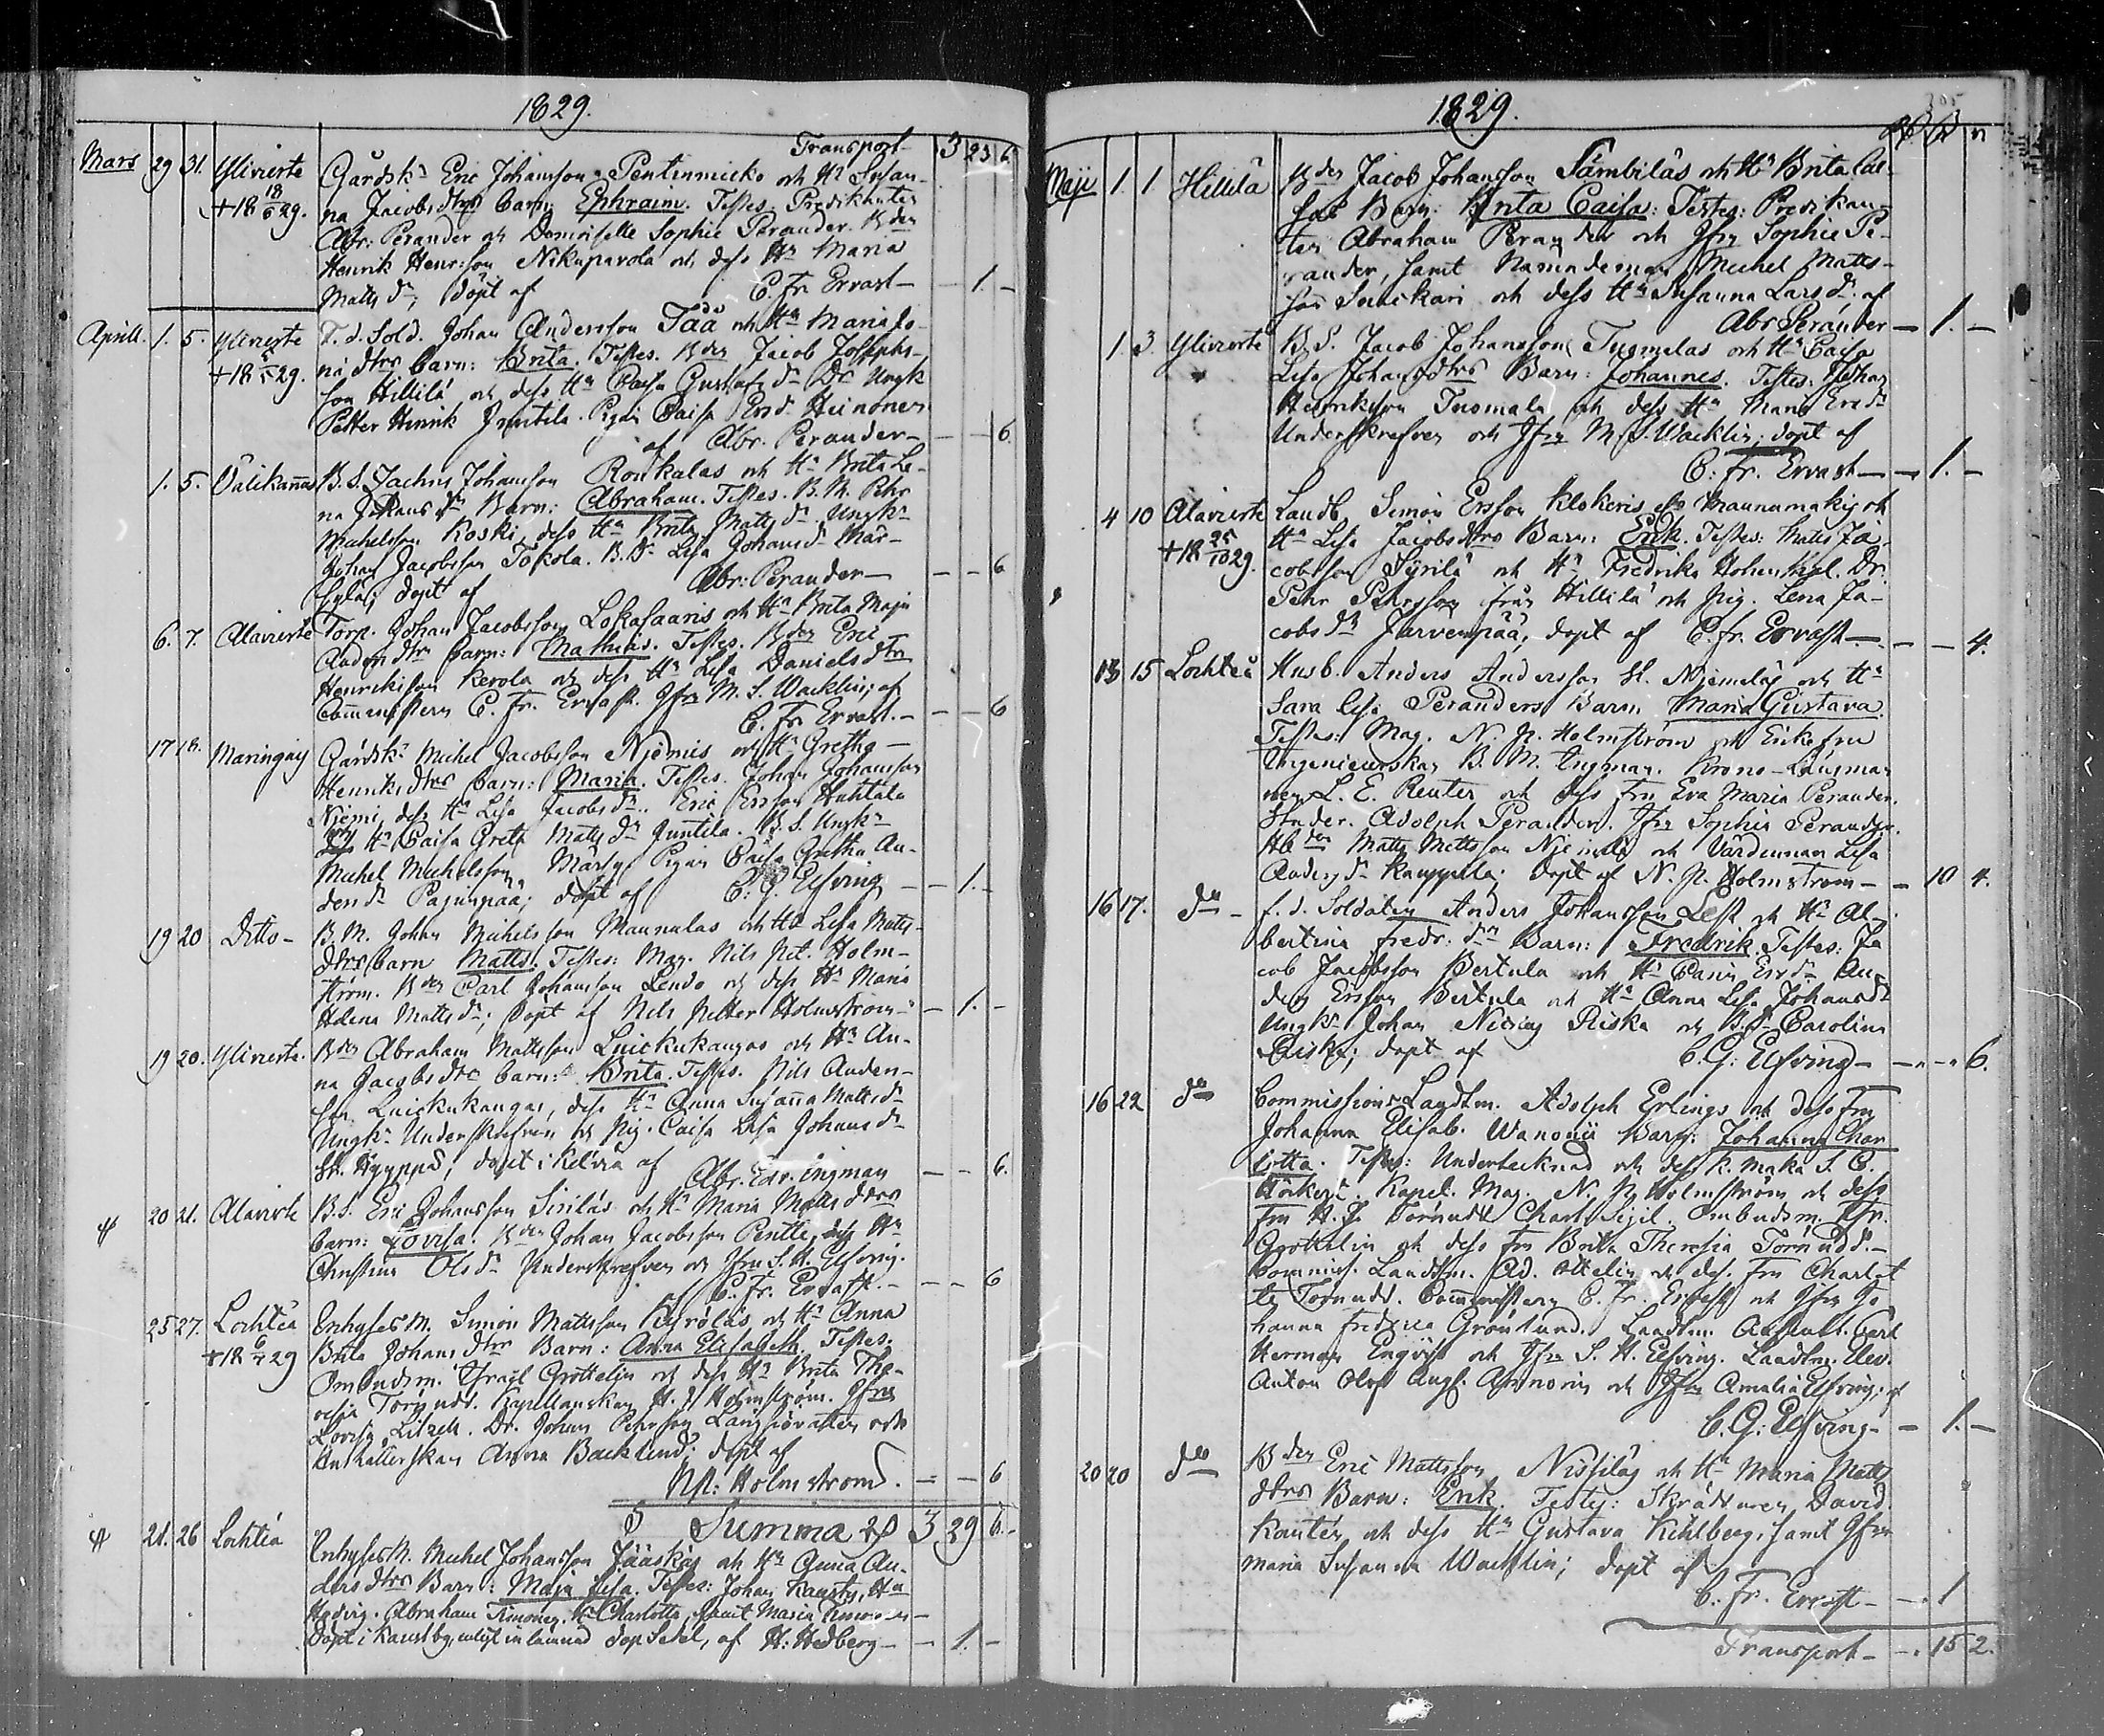 1829.
Transport 3 23 6
Mars 29 31. Ylivierte Gårdsk. Eric Johansson Pentinmicko och Hu Susan-
+18 18/6 29. na Jacobsdtrs barn: Ephraim. Testes. Predikanten
Abr: Perander och Damoiselle Sophie Perander. Bden
Henrik Henr:son Nikuparola och dess Hu Maria
Matts dr, döpt af C. Fr. Ervast — 1 —
Aprill. 1. 5. Ylivierte F. d. Sold. Johan Andersson Tåå och Hu Maria Jo-
+18 5/5 29. na dtrs barn: Brita. Testes. Bden Jacob Josephs-
son Hillilä och dess Hu Caisa Gustafs dr Dr Ungk
Petter Henrik Juntila. Pigan Caisa Ersd. Heinonen
af Abr. Perander — — 6.
1. 5. Välikannus B. S. Zachris Johansson Ronkalas och Hu Brita Le-
na Johans dr Barn: Abraham. Testes. B. M. Pehr
Michelsson Koski, dess Hu Brita Matts dr Ungk.
Johan Jacobsson Tokola. B. Dr Lisa Johansdr Mär-
sylä; döpt af Abr: Perander — — 6
6. 7. Alavierte Torp. Johan Jacobsson Lokasaaris och Hu Brita Maja
Anders dtrs barn: Mathias. Testes. Bden Eric
Henriksson Kerola och dess Hu Lisa Danielsdtr
Comministern C. Fr. Ervast. Jfru M. S. Wacklin; af
C. Fr Ervast. — — 6
17 18. Maringais Gårdsk. Michel Jacobsson Niemis och Hu Gretha
Henriksdtrs barn: Maria. Testes. Johan Johansson
Niemi, dess Hu Lisa Jacobsdr. Eric Ersson Huhtala
och Hu Caisa Greta Matts dr Juntila. B. S. Ungk.
Michel Michelsson Märsy Pigan Caisa Gretha An-
dersdr Pajunpää; döpt af C. G. Elfving — 1. —
19 20 Ditto — B. M. Johan Michelsson Maunulas och Hu Lisa Matts-
dtrs barn Matts. Testes: Mag. Nils Pet. Holm-
ström. Bden Carl Johansson Lendo och dess Hu Maria
Helena Mattsdr; döpt af Nils Petter Holmström — 1. —
19 20. Ylivierte. Bden Abraham Mattsson Luickukangas och Hu An-
na Jacobsdtrs barn: Brita. Testes. Nils Anders-
son Luickukangas, dess Hu Anna Susanna Mattsdr
Ungk. Underskrefven och Pig. Caisa Lisa Johansdr
St. Hyyppä; döpt i Kelviå af Abr. Edv. Ingman — — 6.
20 21. Alavierte B. S. Eric Johansson Sirilås och Hu Maria Matts dtrs
barn: Lovisa. Bden Johan Jacobsson Pentte, dess Hu
Christina Olsdr Underskrefven och Jfru S. H. Elfving.
C. Fr. Ervast. — — 6
25 27. Lochteå Enhyses M. Simon Mattsson Kyrölas och Hu Anna
+18 6/5 29 Brita Johans dtrs Barn: Anna Elisabeth. Testes.
Ombudsm. Israël Grottelin och dess Hu Brita The-
resia Tornudd. Kapellanskan H. J. Holmström. Jfru
Lovisa Litzell. Dr. Johan Pehrsson Långhiovatten och
Enkällerskan Anna Backlund; döpt af
NP: Holmström. — — 6
S Summa 3 29 6.
21. 26 Lochteå Enhyses M. Michel Johansson Jääskäs och Hu Anna An-
ders dtrs Barn: Maja Lisa. Testes: Johan Kausty, Hu
Hedvig. Abraham Timonen, Hu Charlotta, samt Maria Timonen
döpt i Kaustby, enligt inlämnad dop Sedel, af H: Hedberg — 1. —
1829.
305
Maji 1. 1 Hillilä Bden Jacob Johansson Sämbiläs och Hu Brita Cai-
sas Barn: Brita Caisa: Testes: Predikan-
ten Abraham Perander och Jfru Sophie Pe-
rander, samt Nämndeman Michel Matts-
son Snickari och dess Hu Susanna Larsdr. af
Abr Perander — 1. —
1. 3. Ylivierte B. S. Jacob Johansson Tuomelas och Hu Caisa
Lisa Johansdtrs Barn: Johannes. Testes: Johan
Henriksson Tuomala och dess Hu Maria Ersdr
Underskrefven och Jfru M. S. Wacklin; döpt af
C: Fr. Ervast — 1. —
4 10 Alavierte Landb. Simon Ersson Klokeris Maunumäki och
+18 25/10 29. Hu Lisa Jacobsdtrs Barn: Erik. Testes: Matts Ja-
cobsson Syrilä och Hu Fredrika Hohenthal. Dr.
Petr Pehrsson från Hillilä och Pig. Lena Ja-
cobs dr Järvenpää, döpt af C. Fr. Ervast — — 4.
13 15 Lochteå Husb. Anders Andersson St. Niemelås och Hu
Sara Lisa Peranders Barn: Maria Gustava.
Testes: Mag. N. P. Holmström och Enkefru
Ingenieurskan B. M. Ingman. Krono-Länsman
nen L. E. Reuter och dess Fru Eva Maria Perander.
Studer. Adolph Perander. Jfru Sophia Perander.
Hbden Matts Mattsson Niemelä och Värdinnan Lisa
Anders dr Kamppila; Döpt af N. P. Holmström — 10 4.
16 17. do — f. d. Soldaten Anders Johansson Lest och Hu Al-
bertina Fredr: drs Barn: Fredrik. Testes: Ja
cob Jacobsson Bertula och Hu Caisa Ersdr An-
ders Ersson Bertula och Hu Anna Lisa Johansdr
Ungk. Johan Riska och B. Dr Carolina
Riska; döpt af C. G: Elfving — — 6.
16 22 do Commissions Landtm. Adolph Erlings och dess Fru
Johanna Elisab. Wanonii Barn: Johanna Char
lotta. Testes: Undertecknad och dess k. maka S. C.
Hörkert. Kapel. Mag. N. P. Holmström och dess
Fru H. J. Tornudd Chart. Sigil. Ombudsm. Isr.
Grottelin och dess Fru Britta Theresia Tornudd. —
Commiss. Landtm. Ad. Ottelin och dess Fru Charlot
te Tornudd. Comministern C. Fr. Ervast och Jfru Jo
hanna Fredrica Grönlund. Landtm. Auscult. Carl
Herman Enqvist och Jfru S. H. Elfving. Landtm. Elev.
Anton Olof Aug. och Jfru Amalia Elfving; af
C. G: Elfving — 1. —
20 20 do Bden Eric Mattsson Nissilas och Hu Maria Matts
dtrs Barn: Erik. Testes: Skräddaren David
Kantén, och dess Hu Gustava Kihlberg, samt Jfru
Maria Susanna Wacklin; döpt af
C. Fr. Ervast — 1
Transport — 15 2.